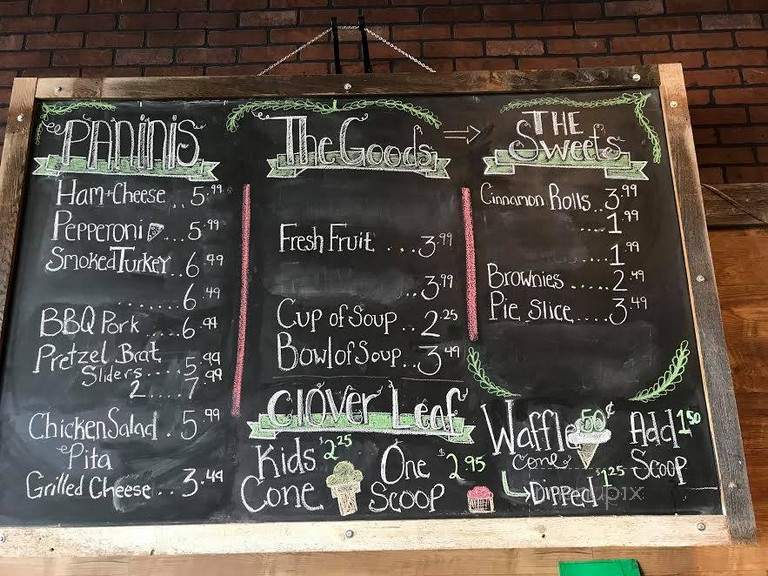 PANINIS
Ham+Cheese .. 5.99
Pepperoni ... 5.99
Smoked Turkey .. 6.49
....... 6.49
BBQ Pork .... 6.99
Pretzel Brat
Sliders .... 5.99
2 .... 7.99
Chicken Salad . 5.99
Pita
Grilled Cheese .. 3.49
The Goods
Fresh Fruit ... 3.99
... 3.99
Cup of Soup .. 2.25
Bowl of Soup .. 3.49
THE
Sweets
Cinnamon Rolls .. 3.99
.... 1.99
.... 1.99
Brownies ..... 2.49
Pie Slice .... 3.49
Clover Leaf
Kids $2.25
Cone
One $2.95
Scoop
Waffle 50¢
Cone
Dipped $1.25
Add 1.50
Scoop